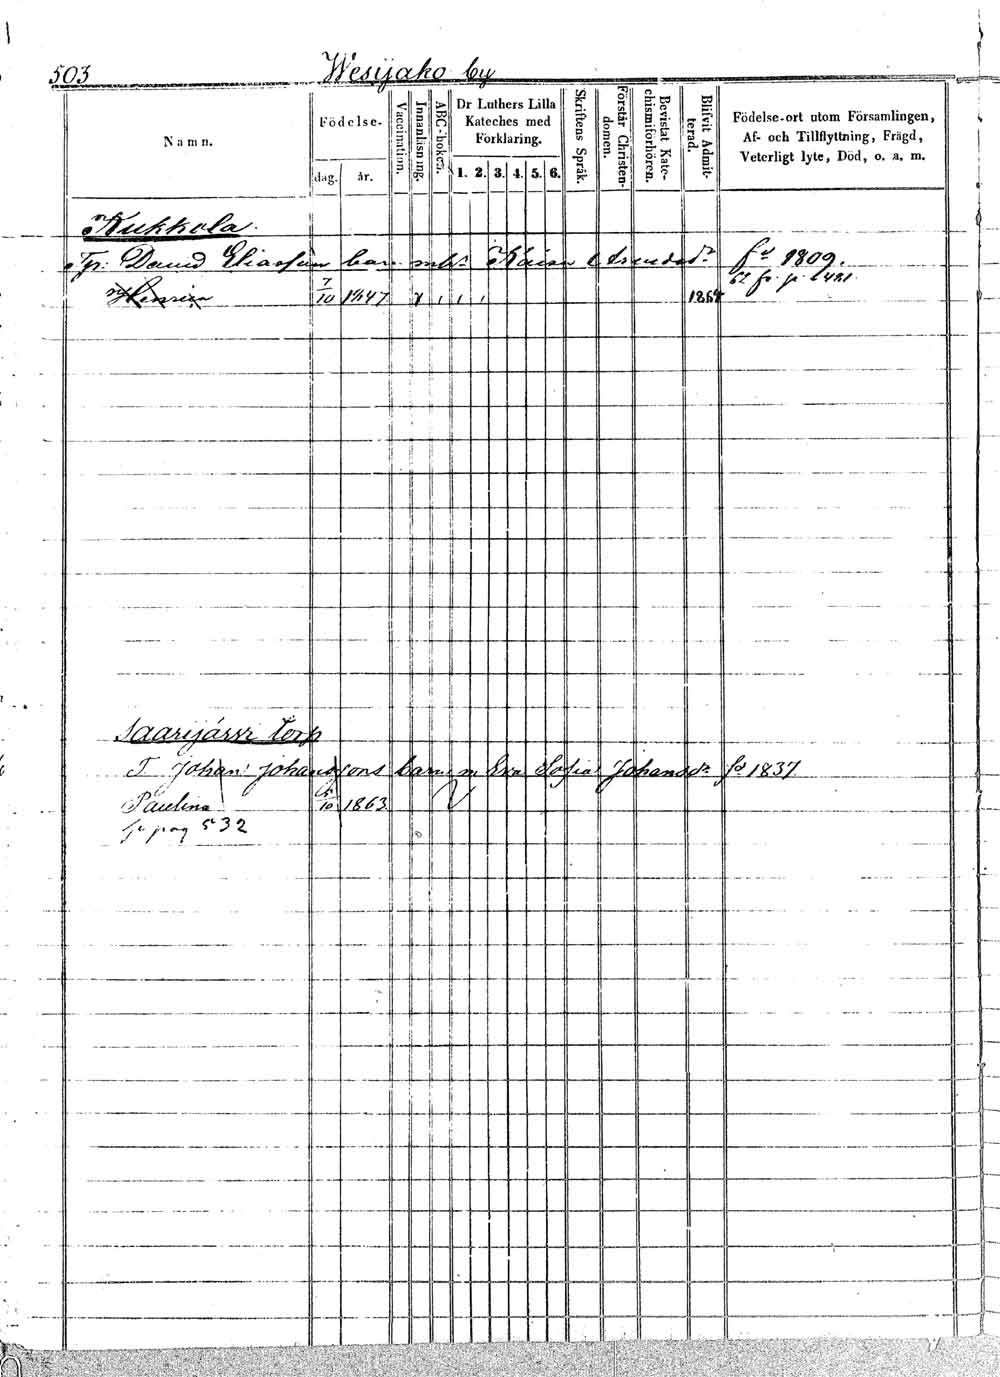 503 Wesijako by
Namn.
Födelse-
dag. år.
Vaccination.
Innanläsning.
ABC-boken.
Dr Luthers Lilla
Kateches med
Förklaring.
1. 2. 3. 4. 5. 6.
Skriftens Språk.
Förstår Christen-
domen.
Bevistat Kate-
chismiförhören.
Blifvit Admit-
terad.
Födelse-ort utom Församlingen,
Af- och Tillflyttning, Frägd,
Veterligt lyte, Död, o. a. m.
Kukkola.
David Eliasson barn Kaisa fd 1809.
7/10 1847 1864
Saarijärvi torp
T. Johan Johansons barn m Eva Sofia Johansdr fd 1837
Paulina 5/10 1863
pag 532